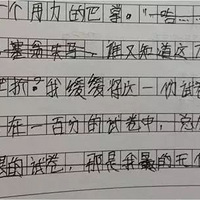 一个用力的巴掌。"啪……
塞翁失马，谁又知道这
把折。"我缓缓将这一份试卷
在一百分的试卷中，
的试卷，那是我最的无